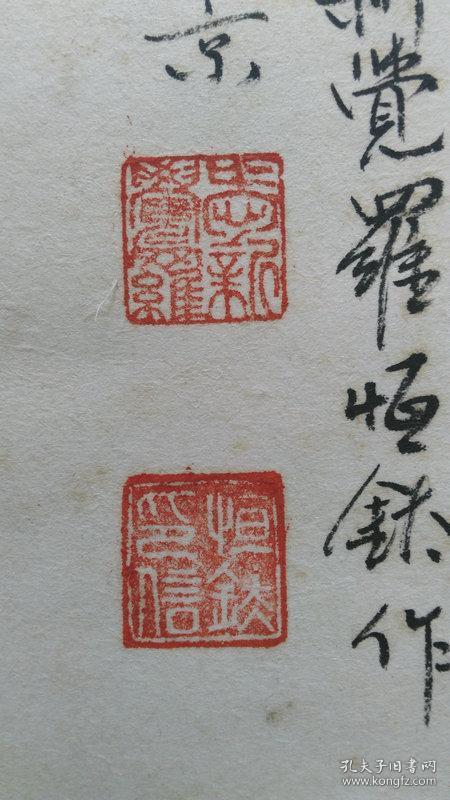 新覺羅恒鉄作
京
愛新覺羅
恒鉄印信
孔夫子旧书网
www.kongfz.com